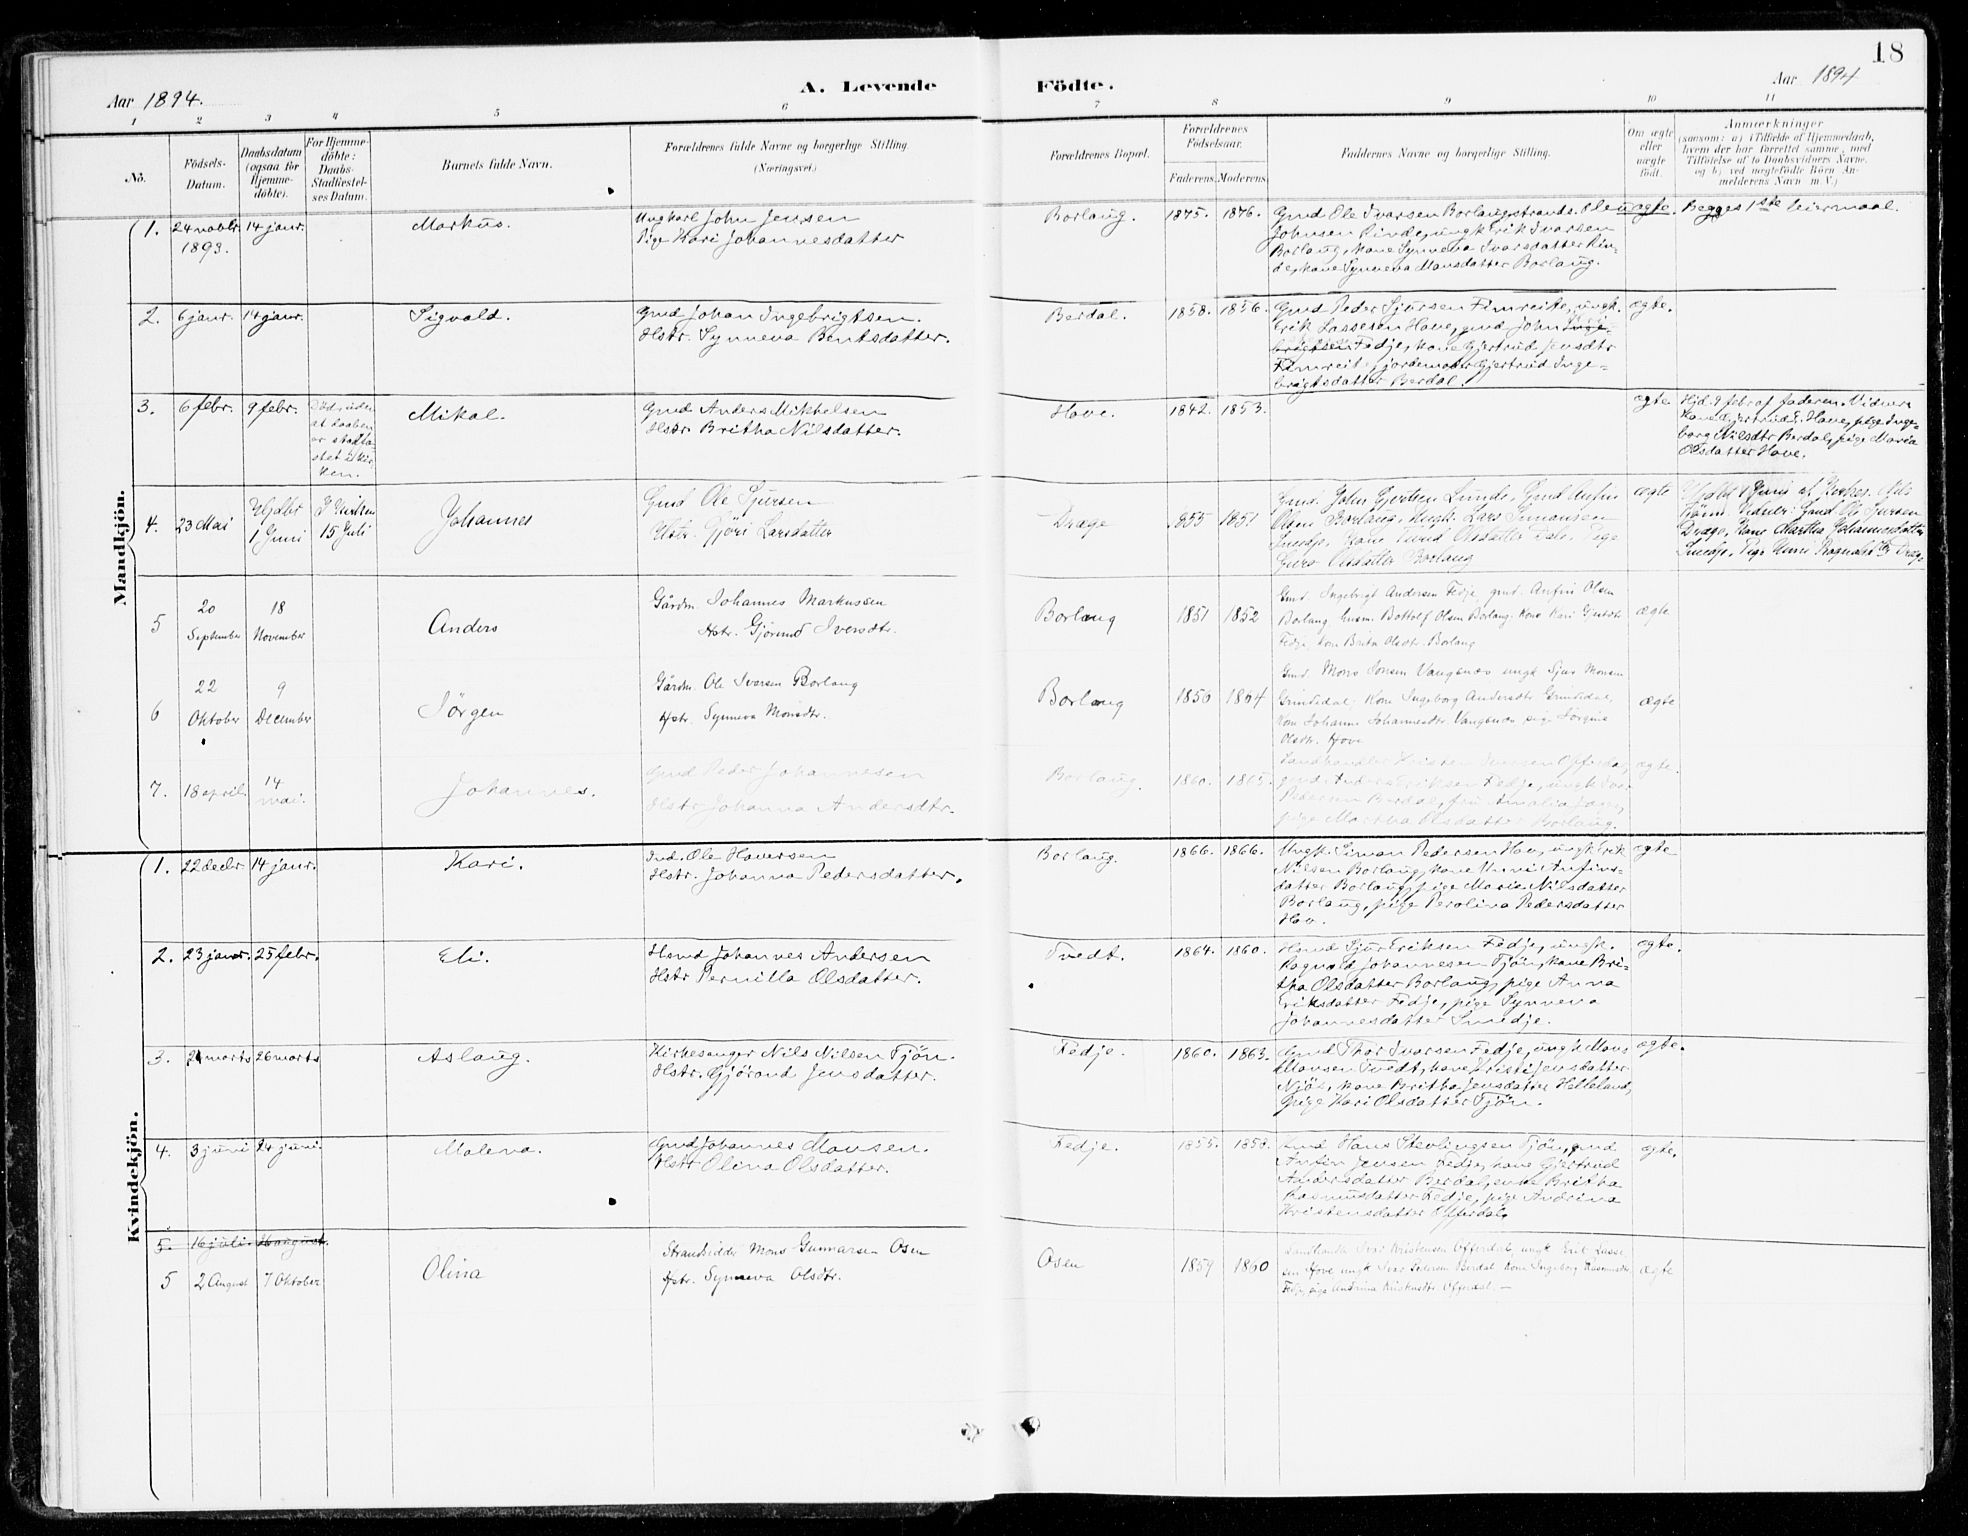 18
Aar 1894.
A. Levende
Födte.
Aar 1894
1 2 3 4 5 6 7 8 9 10 11
No.
Födsels-
Datum.
Daabsdatum
(ogsaa for
Hjemme-
döbte).
For Hjemme-
döbte:
Daabs-
Stadfæstel-
ses Datum.
Barnets fulde Navn.
Forældrenes fulde Navne og borgerlige Stilling.
(Næringsvei.)
Forældrenes Bopæl.
Forældrenes
Födselsaar.
Faderens. Moderens.
Faddernes Navne og borgerlige Stilling.
Om ægte
eller
uægte
födt.
Anmærkninger
(saasom: a) i Tilfælde af Hjemmedaab,
hvem der har forrettet samme, med
Tilföielse af to Daabsvidners Navne,
og b) ved uægtefödte Börn An-
melderens Navn m. V.)
Mandkjön.
1. 24 novbr. 1893. 14 janr. Markus.
Ungkarl John Jensen
Pige Kari Johannesdatter
Borlaug. 1875. 1876.
Gmd Ole Ivarsen Borlaugstrande. Ole
Johnsen Rinde, ungk Erik Ivarsen
Borlaug, kone Synneva Ivarsdatter Rin-
de, kone Synneva Monsdatter Borlaug.
uægte. Begges 1ste leiermaal.
2. 6 janr. 14 janr. Sigvald.
Gmd Johan Ingebrigtsen.
Hstr. Synneva Bentsdatter.
Berdal. 1858. 1856.
Gmd Peder Sjursen Fimreite, ungk.
Erik Lassesen Hove, gmd John Inge-
brigtsen Fedje, kone Gjertrud Jensdtr
Fimreit, jordemoder Gjertrud Inge-
brigtsdatter Berdal.
ægte.
3. 6 febr. 9 febr.
Död, uden
at daaben
er stadfæ-
stet i kir-
ken.
Mikal.
Gmd Anders Mikkelsen
Hstr Britha Nilsdatter.
Hove. 1842. 1853. ægte
Hjd. 9 febr af faderen. Vidner:
kone Gjertrud E. Hove, pige Inge-
borg Nilsdtr Berdal, pige Maria
Olsdatter Hove.
4. 23 Mai Hjdbt 1 Juni I Kirken 15 Juli Johannes
Gmd Ole Sjursen
Hstr. Gjöri Larsdatter
Drage 1855 1851
Gmd. John Gjertsen Lunde, Gmd Anfin
Olsen Borlaug, Ungk. Lars Simonsen
Smedje, Kone Olsdatter Pige
Guro Olsdatter Borlaug
ægte
Hjdbt 1 Juni af Kirkes. Nils
Vidner: Gmd Ole Sjursen
Drage, Kone Martha Johannesdatter
Smedje, Pige Unni Ragnaldsdtr Drage
5 20 September 18 November Anders
Gårdm. Johannes Markussen
Hstr. Gjörond Iversdtr.
Borlaug 1851 1852
Gmd. Ingebrigt Andersen Fedje, gmd. Anfin Olsen
Borlaug, husm. Bottolf Olsen Borlaug. Kone Kari
Fedje, kone Brita Olsdtr. Borlaug
ægte
6 22 Oktober 9 December Jörgen
Gårdm. Ole Iversen Borlaug
Hstr. Synneva Monsdtr.
Borlaug 1850 1864
Gmd. Mons Jonsen Vangsnæs ungk Sjur Monsen
Grinsdal, Kone Ingeborg Andersdtr Grinsdal,
Kone Johanne Johannesdtr. Vangsnæs, pige Jörgine
Olsdtr. Hove
ægte
7. 18 april. 14 mai. Johannes.
Gmd Peder Johannesen
Hstr Johanna Andersdtr.
Borlaug. 1860. 1865.
Landhandler Kristen Iversen Offerdal,
gmd. Anders Eriksen Fedje, ungk Ivar
Pedersen Berdal, fru Amalia
pige Martha Olsdatter Borlaug.
ægte.
Kvindekjön.
1. 22 decbr. 14 janr. Kari.
Ind. Ole Haversen
Hstr. Johanna Pedersdatter.
Borlaug. 1866. 1866.
Ungk. Simon Pedersen Hov, ungk Erik
Nilsen Borlaug, kone Unni Anfins-
datter Borlaug, pige Marie Nilsdatter
Borlaug, pige Perolina Pedersdatter
Hov.
ægte
2. 23 janr. 25 febr. Eli.
Hsmd Johannes Andersen
Hstr Pernilla Olsdatter.
Tvedt. 1864. 1860.
Hsmd Sjur Eriksen Fedje, ungk.
Ragnvald Johannesen Tjön, kone Bri-
tha Olsdatter Borlaug, pige Anna
Eriksdatter Fedje, pige Synneva
Johannesdatter Smedje.
ægte.
3. 21 marts 26 marts Aslaug.
Kirkesanger Nils Nilsen Tjön.
Hstr. Gjörond Jensdatter.
Fedje. 1860. 1863.
Gmd Thor Ivarsen Fedje, ungk Mons
Monsen Tvedt, kone Kristi Jensdatter
Njös, kone Britha Jensdatter Helleland,
pige Kari Olsdatter Tjön.
ægte.
4. 3 juni 24 juni. Malena.
Gmd Johannes Monsen.
Hstr Olina Olsdatter.
Fedje. 1855. 1858.
Gmd Hans Stevlingsen Tjön, gmd
Anfin Jensen Fedje, kone Gjertrud
Andersdatter Berdal, enke Britha
Rasmusdatter Fedje, pige Andrina
Kristensdatter Offerdal.
ægte.
5. 16 juli. 26 august.
5 2 August 7 Oktober Olina
Strandsidder Mons Gunnarsen Osen
Hstr. Synneva Olsdtr.
Osen 1859 1860
Landhandl. Ivar Kristensen Offerdal, ungk Erik Lasse-
sen Hove ungk Ivar Pedersen Berdal Kone Ingeborg Rasmusdtr
Fedje, pige Andrina Kristensdtr. Offerdal. —
ægte